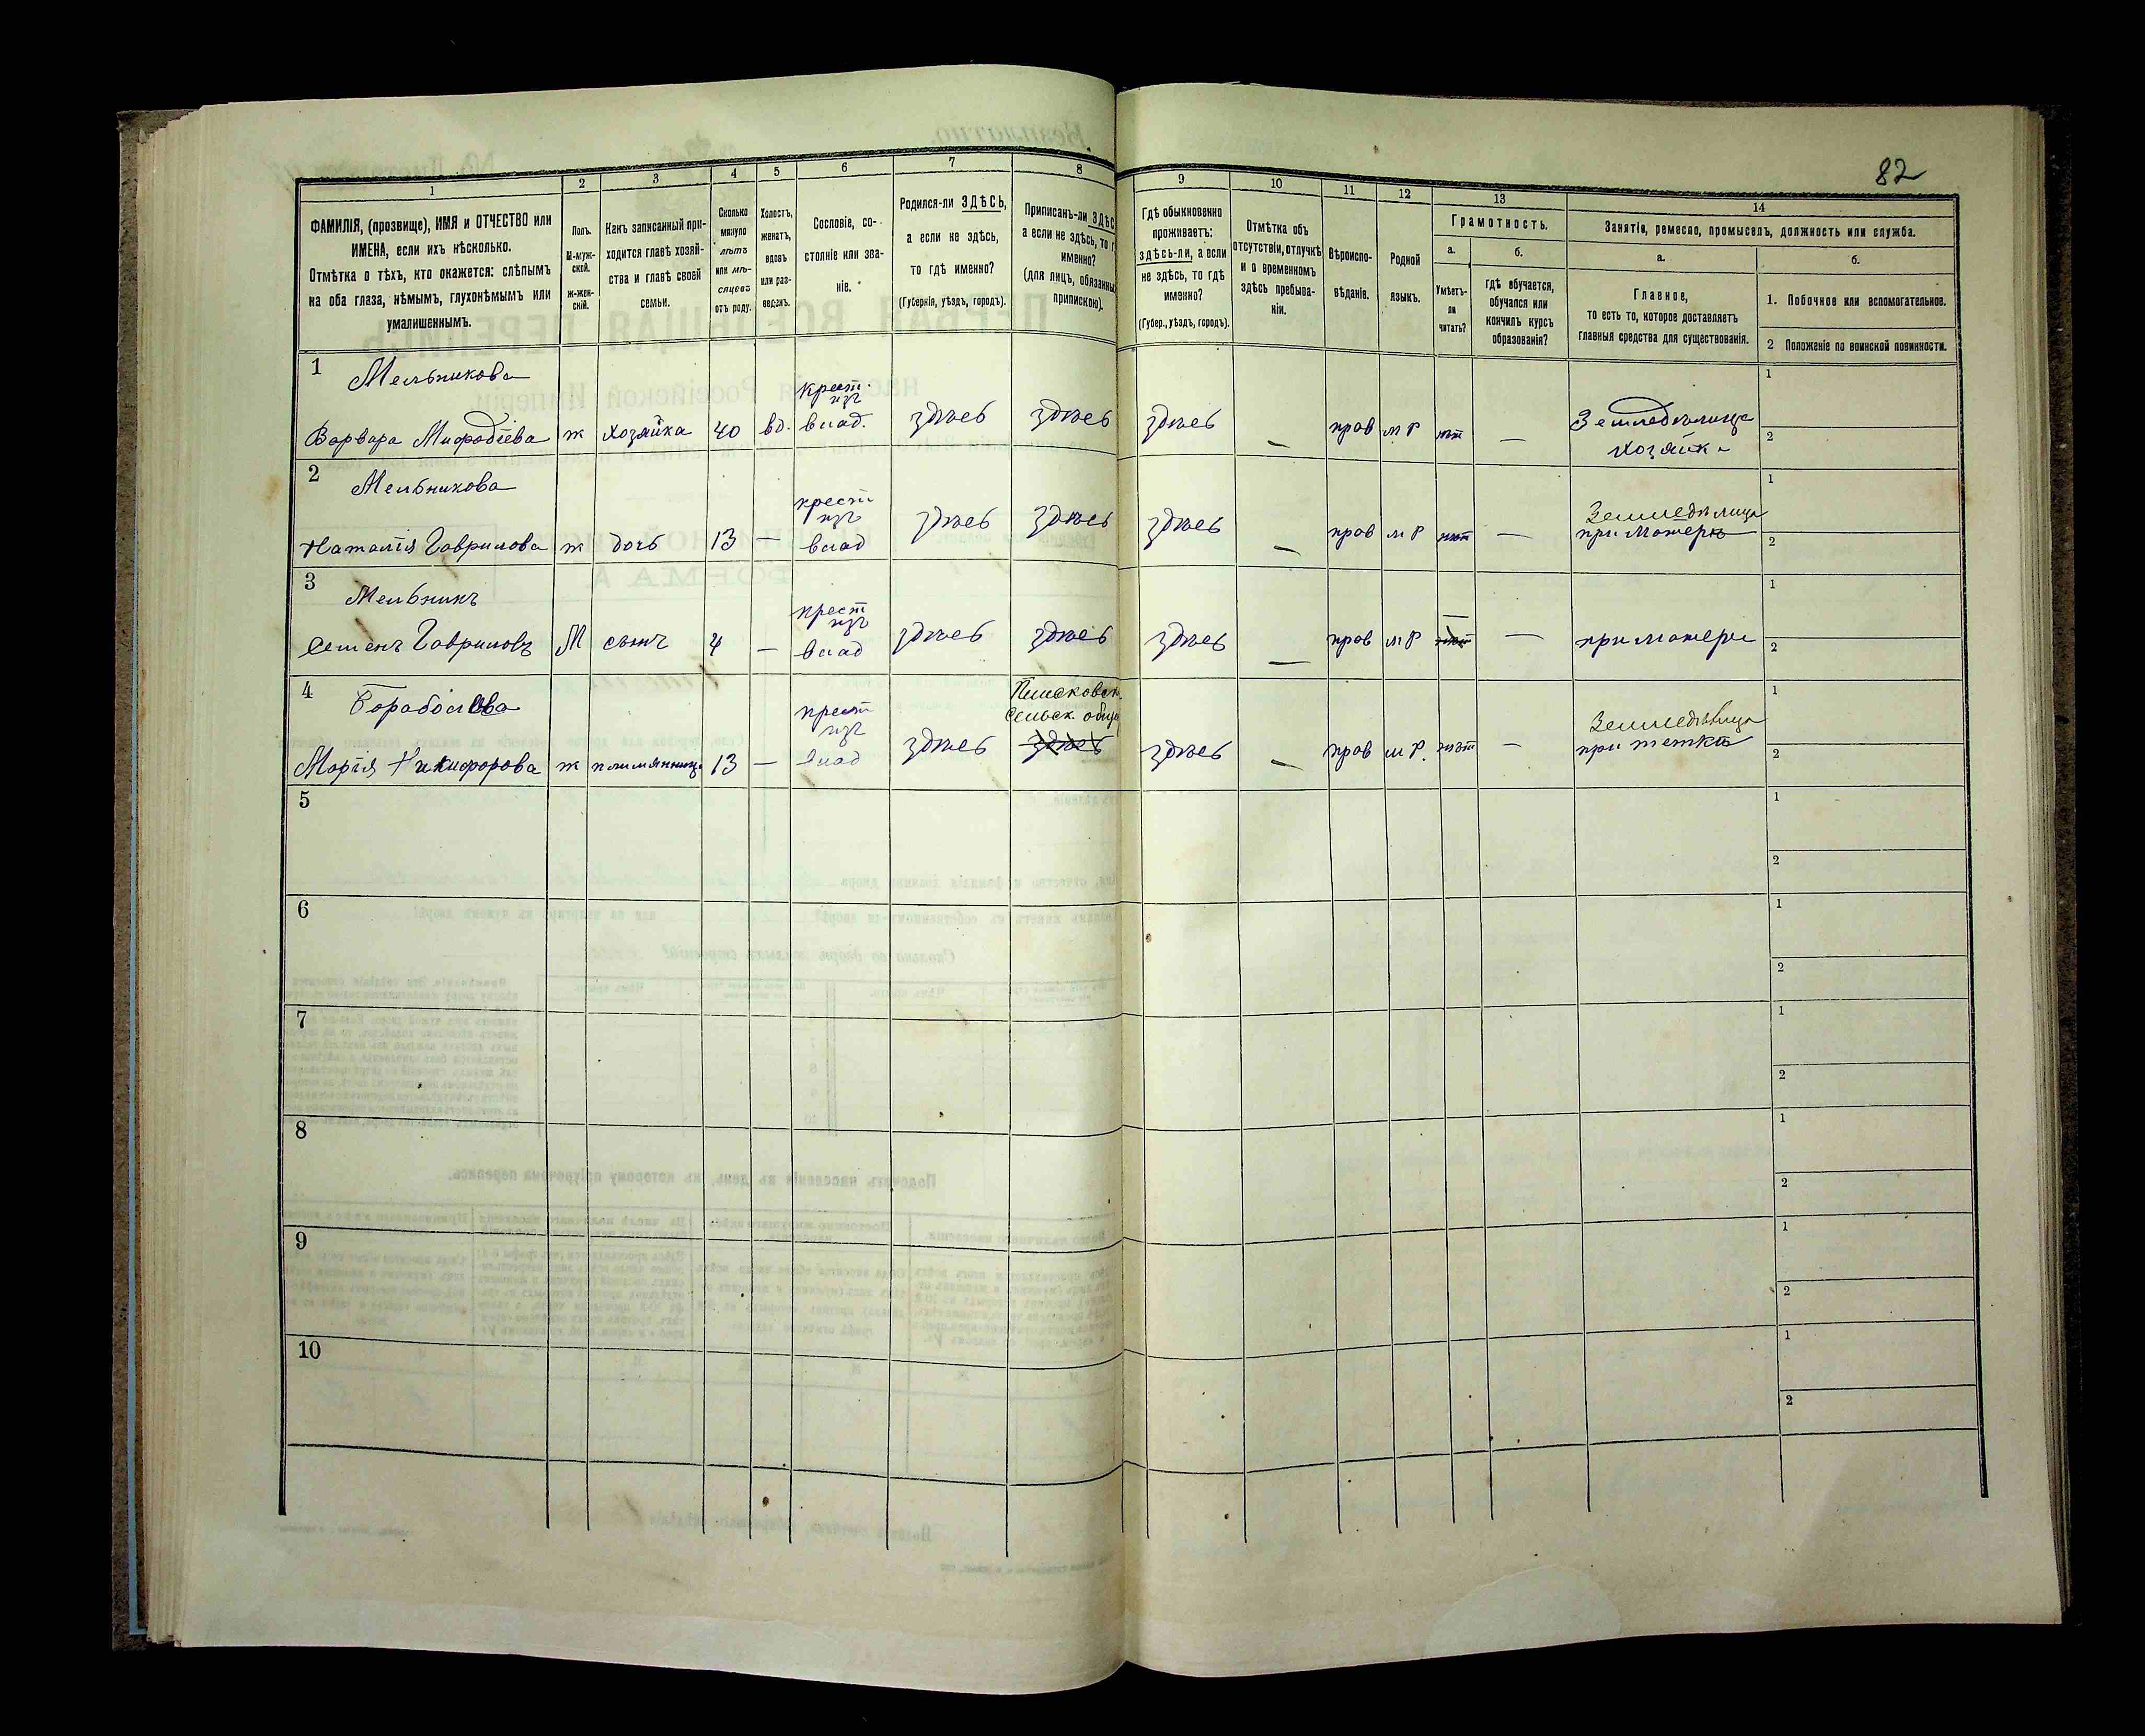 82
1 2 3 4 5 6 7 8 9 10 11 12 13 14
ФАМИЛІЯ, (прозвище), ИМЯ и ОТЧЕСТВО или
ИМЕНА, если ихъ нѣсколько.
Отмѣтка о тѣхъ, кто окажется: слѣпымъ
на оба глаза, нѣмымъ, глухонѣмымъ или
умалишеннымъ.
Полъ.
М-муж-
ской.
Ж-жен-
скій.
Какъ записанный при-
ходится главѣ хозяй-
ства и главѣ своей
семьи.
Сколько
минуло
лѣтъ
или мѣ-
сяцевъ
отъ роду.
Холостъ,
женатъ,
вдовъ
или раз-
веденъ.
Сословіе, со-
стояніе или зва-
ніе.
Родился-ли ЗДѢСЬ,
а если не здѣсь,
то гдѣ именно?
(Губернія, уѣздъ, городъ).
Приписанъ-ли ЗДѢС
а если не здѣсь, то г
именно?
(для лицъ, обязанны
припискою).
Гдѣ обыкновенно
проживаетъ:
здѣсь-ли, а если
не здѣсь, то гдѣ
именно?
(Губер., уѣздъ, городъ).
Отмѣтка объ
отсутствіи, отлучкѣ
и о временномъ
здѣсь пребыва-
ніи.
Вѣроиспо-
вѣданіе.
Родной
языкъ.
Грамотность.
а.
Умѣетъ-
ли
читать?
б.
гдѣ обучается,
обучался или
кончилъ курсъ
образованія?
Занятіе, ремесло, промыселъ, должность или служба.
а.
Главное,
то есть то, которое доставляетъ
главныя средства для существованія.
б.
1. Побочное или вспомогательное.
2 Положеніе по воинской повинности.
1 Мельникова крест. 1
изъ
Варвара Мифодіева ж хозяйка 40 вд. влад. здѣсь здѣсь здѣсь — прав м р нѣт — Земледѣлица 2
хозяйка
2 Мельникова крест 1
изъ
Наталія Гаврилова ж дочь 13 — влад здѣсь здѣсь здѣсь — прав м р нѣт — Земледѣлица
при матери 2
3 Мельникъ крест 1
изъ —
Семенъ Гавриловъ М сынъ 4 — влад здѣсь здѣсь здѣсь — прав м р нѣт — при матери 2
4 крест 1
изъ Сельск. общ
Марія Никифорова ж племянница 13 — влад здѣсь здѣсь здѣсь — прав м р. нѣт — Земледѣлица
при теткѣ 2
5 1
2
6 1
2
7 1
2
8 1
2
9 1
2
10 1
2